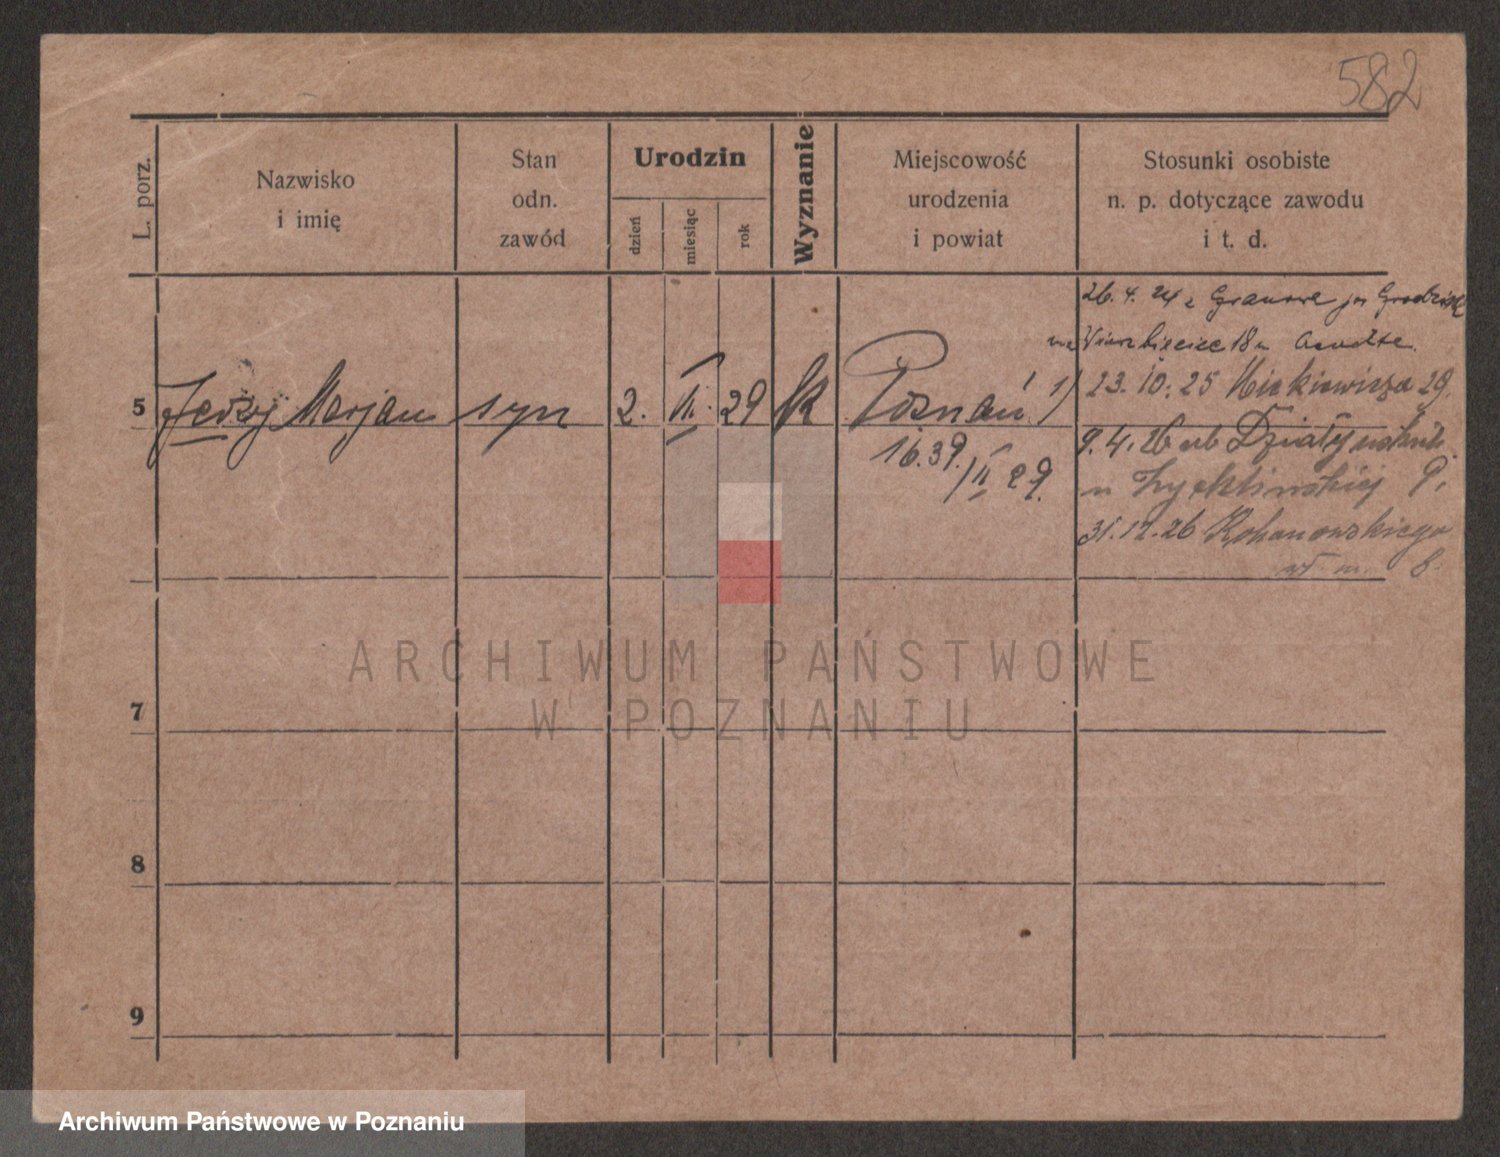 582
L. porz.
Nazwisko
i imię
Stan
odn.
zawód
Urodzin
dzień
miesiąc
rok
Wyznanie
Miejscowość
urodzenia
i powiat
Stosunki osobiste
n. p. dotyczące zawodu
i t. d.
26. 4. 24 z Granowa Grodzisk
18
5 Jerzy Marjan syn 2. II. 29 rk Poznań 1) 23. 10. 25 Mickiewicza 29.
16.39./II 29.
9. 4. 26
9.
31. 12. 26 Kohanowskiego
8.
ARCHIWUM PAŃSTWOWE
W POZNANIU
7
8
9
Archiwum Państwowe w Poznaniu